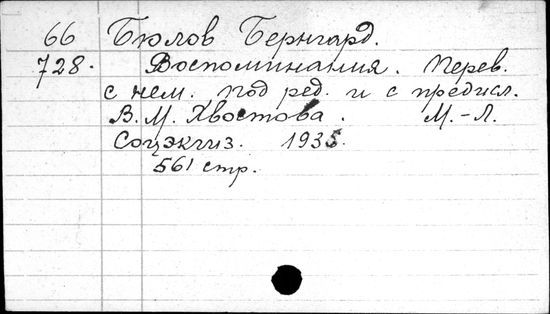 66 Бюлов Бернгард.
728. Воспоминания. Перев.
с нем. под ред. и с предисл.
В. М. Хвостова. М.-Л.
Соцэкгиз. 1935.
561 стр.